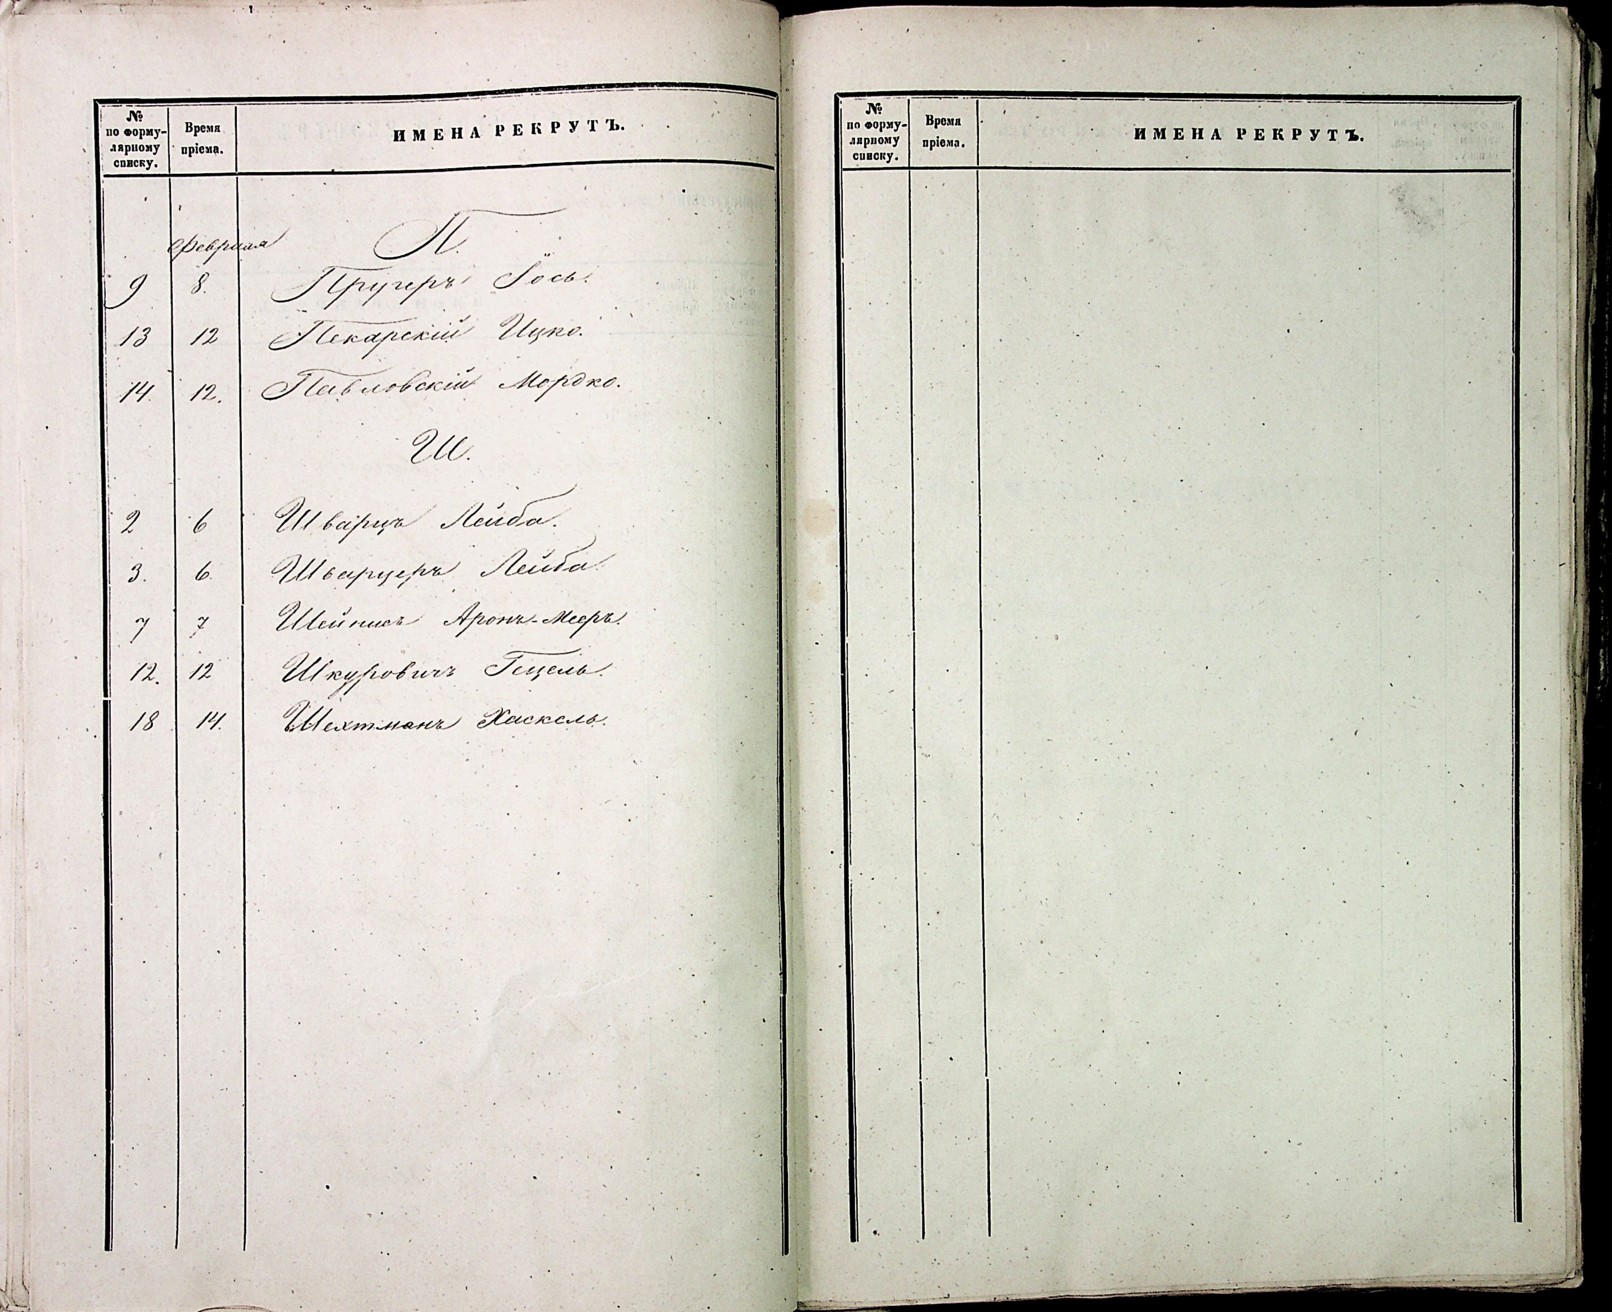 № по формулярному списку. Время пріема. ИМЕНА РЕКРУТЪ.
Февраля П.
9 8. Пругеръ Іось.
13 12 Пекарскій Ицко.
14. 12. Павловскій Мордко.
Ш.
2 6 Шварцъ Лейба.
3. 6. Шварцеръ Лейба.
7 7 Шейнисъ Аронъ-Мееръ.
12. 12 Шкуровичъ Гецель.
18 14. Шехтманъ Хаскель.
№ по формулярному списку. Время пріема. ИМЕНА РЕКРУТЪ.